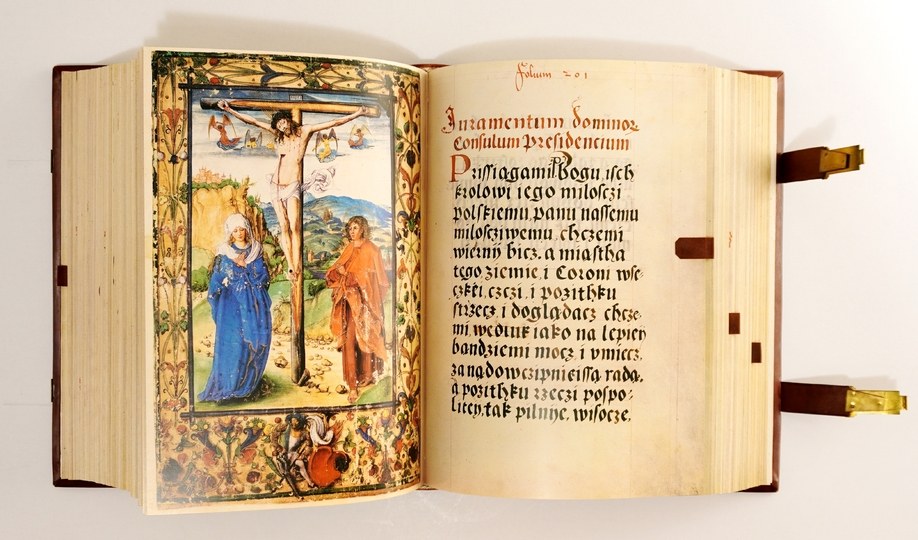 folium 201
Juramentum dominoꝝ
Consulum Presidencium
Prissiągami Bogu, isch
krolowi iego milosczi
polskiemu panu nassemu
milosczi wemu chczemi
wierny bicz, a miastha
tego ziemie, i Coroni wse-
czkei, czczi, i pozithku
strzecz i doglądacz chcze-
mi, wedluk iako na lepiey
bandziemi mocz, i vmiecz,
za nądowczipnieissą radą,
a pozithku rzeczi pospo-
litey, tak pilnye, wisocze,